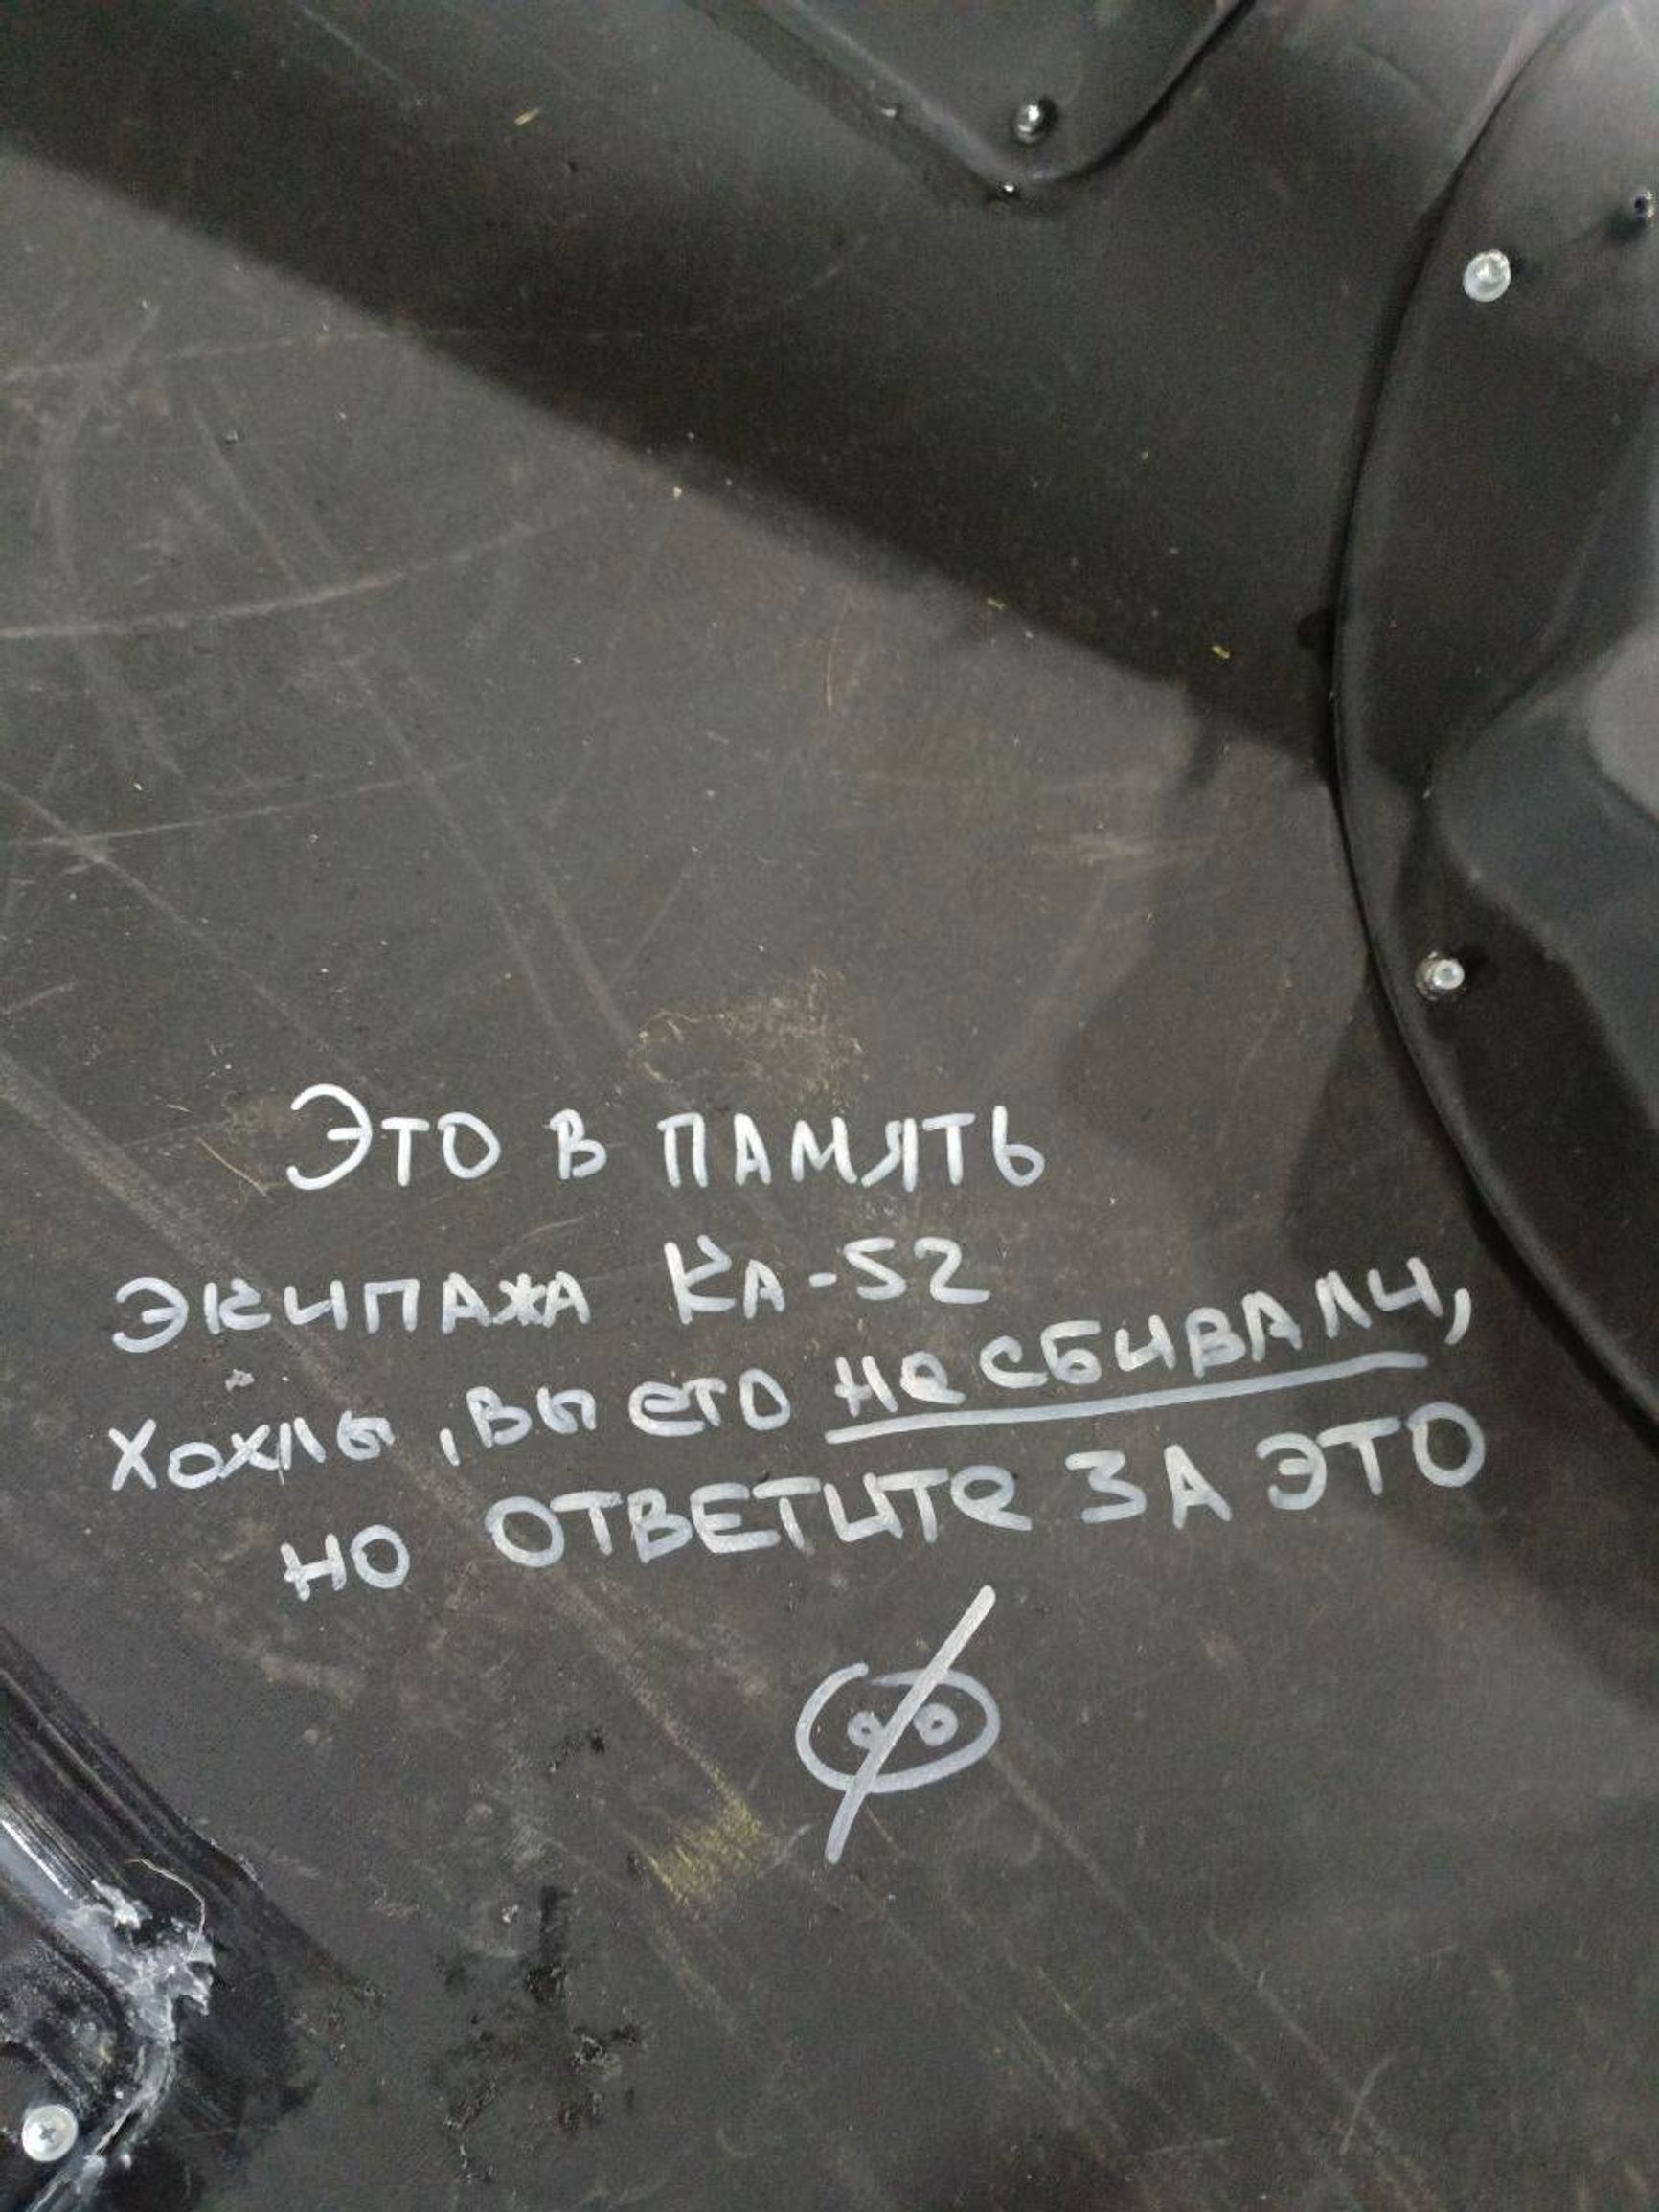 Это в память
экипажа Ка-52
Хохлы, вы его не сбивали,
но ответите за это